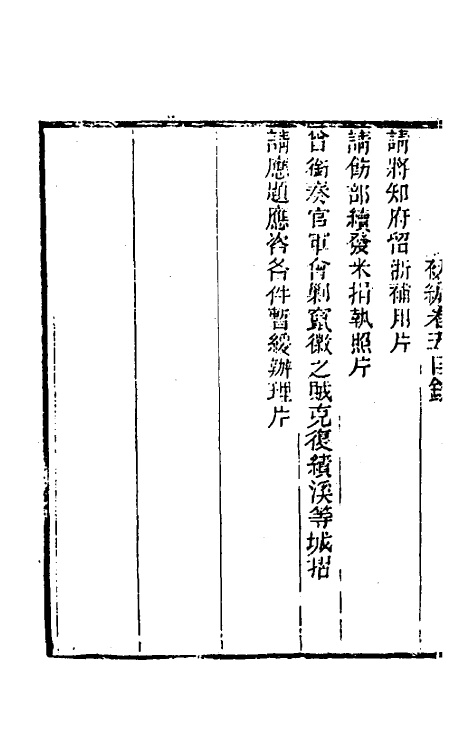 初編卷五目錄
請將知府留浙補用片
請飭部續發米捐執照片
會銜奏官軍會剿竄徽之賊克復績溪等城摺
請應題應咨各件暫緩辦理片